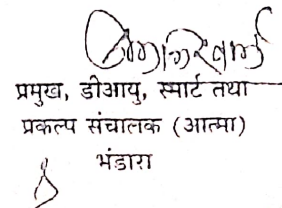 प्रमुख, डीआयु, स्मार्ट तथा
प्रकल्प संचालक (आत्मा)
भंडारा